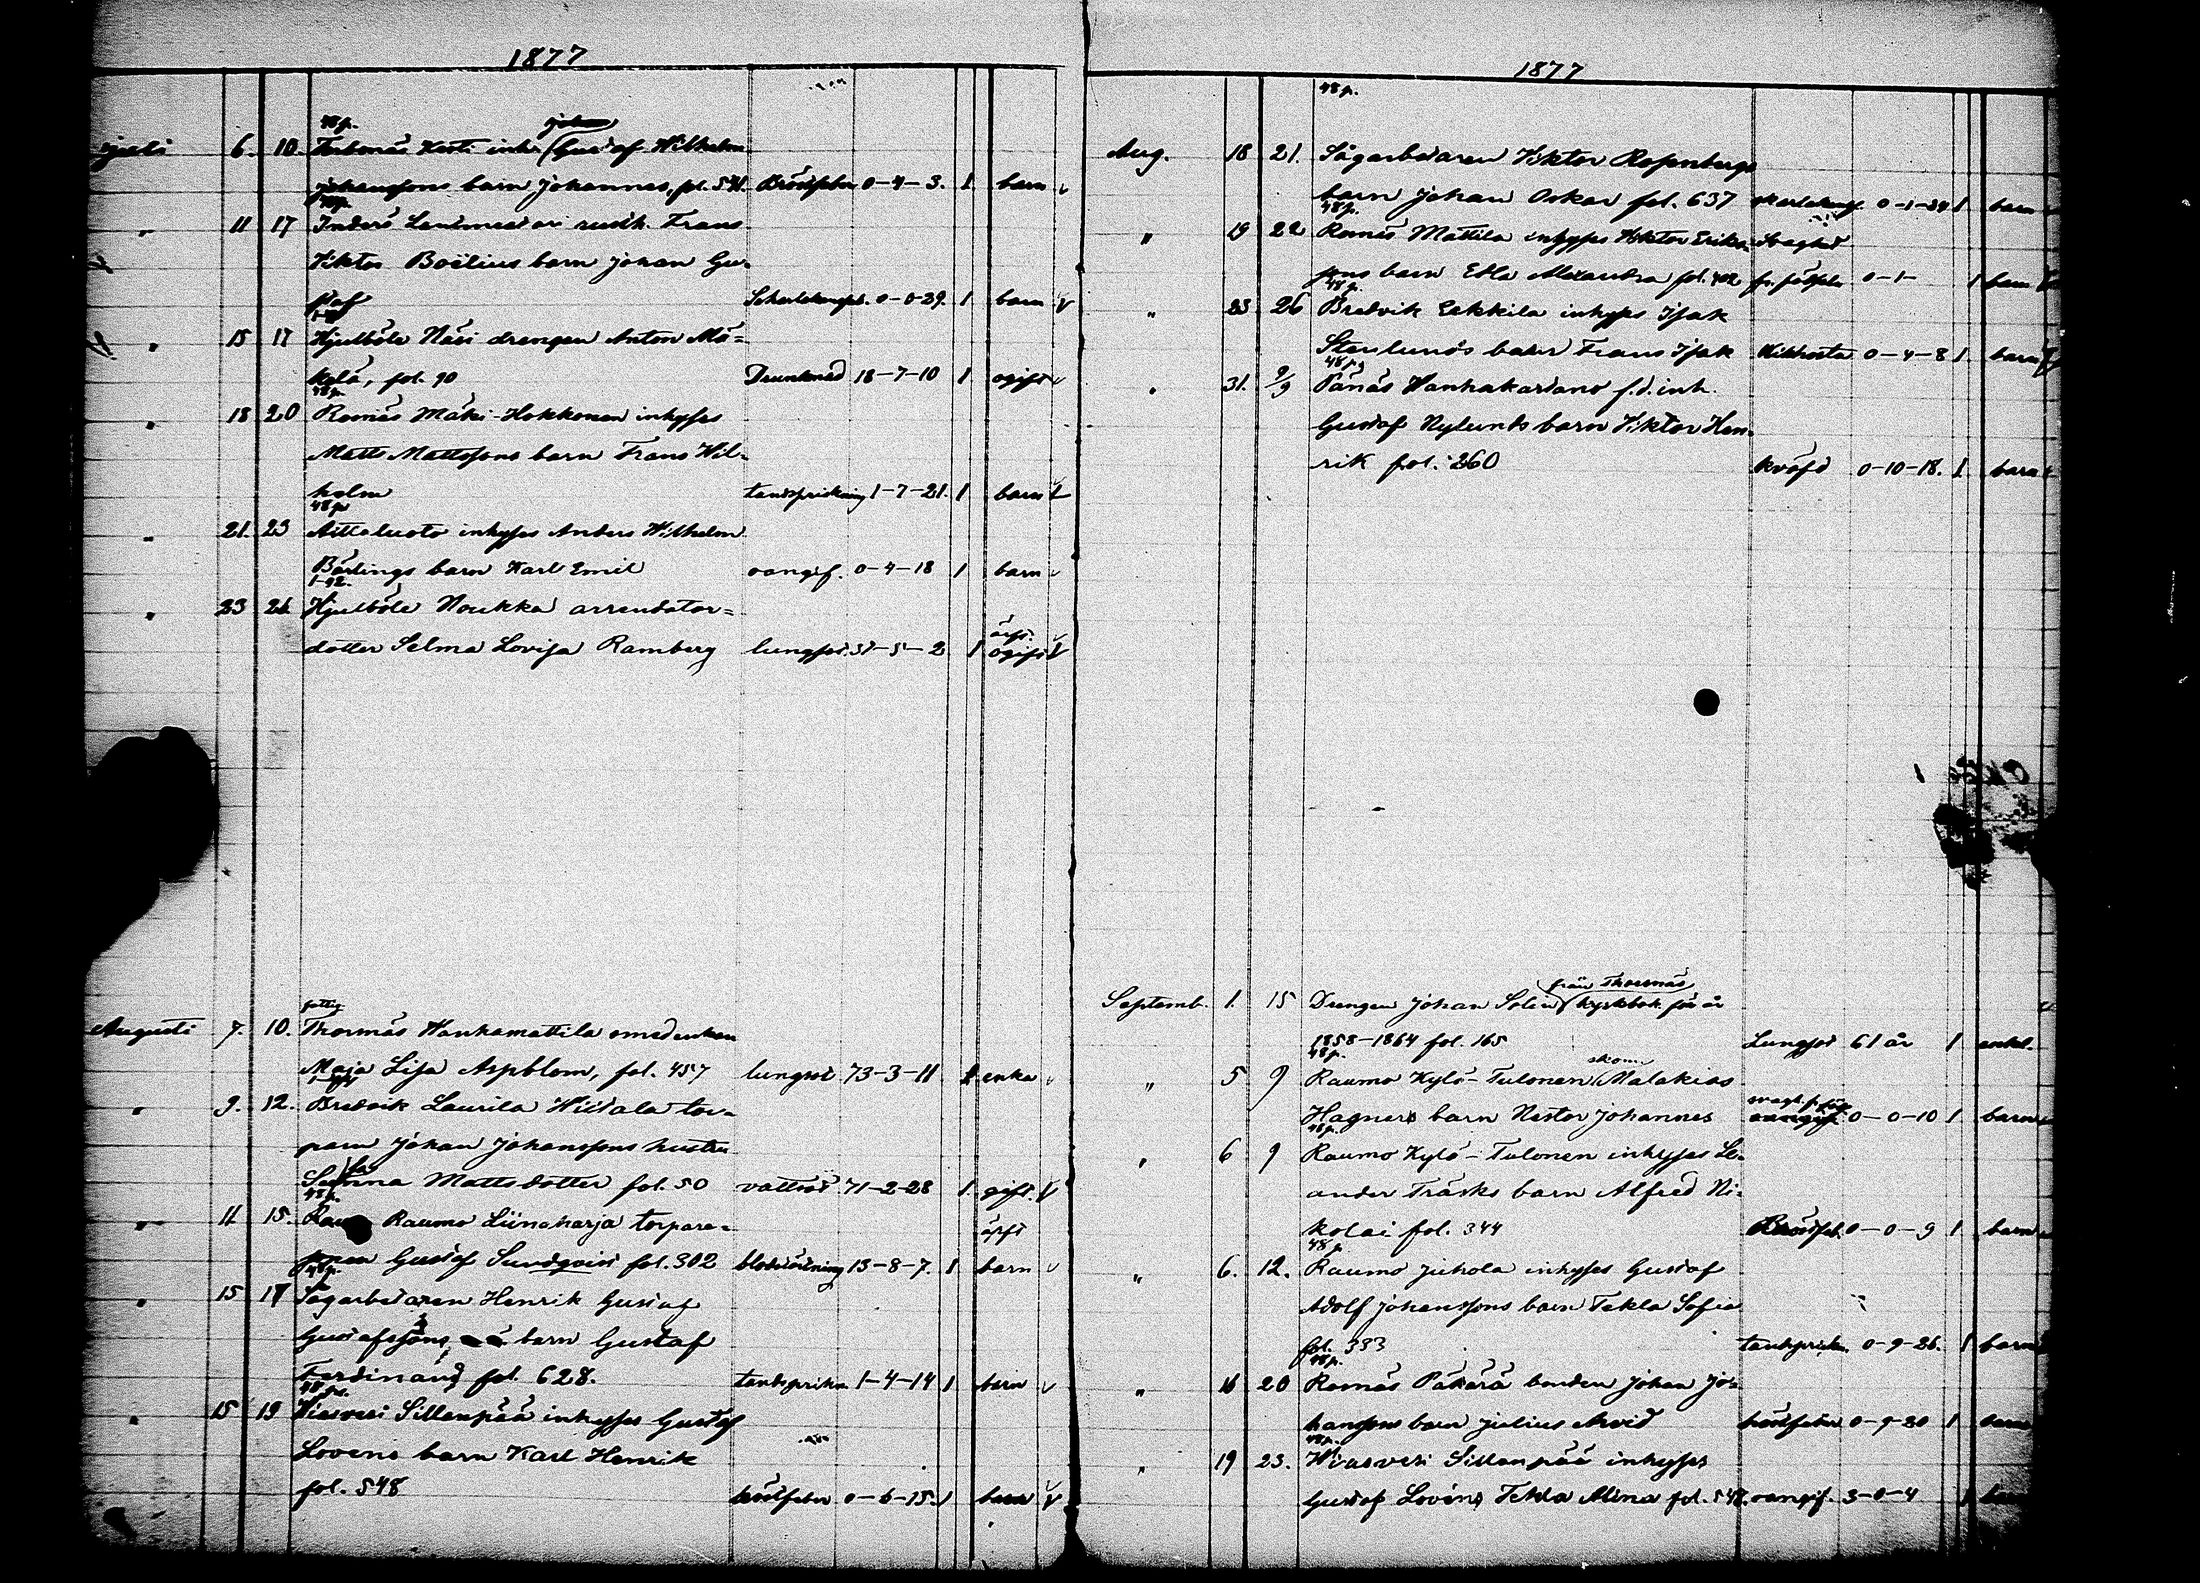 1877
48 p.
Juli 6. 10. Torbonäs Kesti inhs (Gustaf Wilhelm
Johanssons barn Johannes, fol. 541. Bröstfeber 0-4-3. 1 barn
" 11 17 Inderö Landmestari Frans
Viktor Boëlius barn Johan Gu-
staf 0-0-29. 1 barn
" 15 17 Hjulböle Näsi drengen Anton Mä=
kelä, fol. 90 Drunknad 18-7-10 1 ogift
48 p.
" 18 20 Romäs Mäki-Hokkonen inhyses
Matts Mattssons barn Frans Wil-
helm tandsprickning 1-7-21. 1 barn
48 p.
" 21. 23 Aittaluoto inhyses Anders Wilhelm
Bärlings barn Karl Emil oangif. 0-4-18 1 barn
1-92.
" 23 26 Hjulböle Noukka arrendator=
dotter Selma Lovisa Ramberg lungsot 37-5-2 1 ogift
fattig
Augusti 7. 10. Thormäs Hanhamattila enkan
Maja Lisa Aspblom, fol. 457 lungsot 73-3-11 1 enka
" 9. 12. Bredvik Laurila Widala tor-
paren Johan Johanssons hustru
Mattsdotter fol. 50 vattsot 71-2-28 1. gift
48 p.
" 11 15. Raumo Liinaharja torpare-
Gustaf Sundqvist fol. 302 13-8-7. 1 barn
48 p.
" 15 17 Sågarbetaren Henrik Gustaf
Gustafssons barn Gustaf
Ferdinand, fol. 628. tandsprickn 1-4-14 1 barn
" 15 19 Wiasvesi Sillanpää inhyses Gustaf
Lovens barn Karl Henrik
fol. 548 bröstfeber 0-6-15. 1 barn
1877
48 p.
Aug. 18 21. Sågarbetaren Viktor Rosenbergs
barn Johan Oskar fol. 637 0-1-24 1 barn
48 p.
" 19 22 Romäs Mattila inhyses Viktor Eriks- Svaghet
sons barn Edla Alexandra fol. 402 0-1- 1 barn
48 p.
" 23 26 Bredvik Eekkila inhyses Isak
Stenlunds barn Frans Isak Kikhosta 0-4-8 1 barn
48 p
" 31. 2/9 Pänäs Hanhakartano f.d. inh.
Gustaf Nylunds barn Viktor Hen-
rik fol. 260 kväfd 0-10-18. 1. barn
från Thorsnäs
Septemb. 1. 15 Drengen Johan Solin (kyrkbok för år
1858-1864 fol. 165 Lungsot 61 år 1 enkel.
48 p.
" 5 9 Raumo Kylä-Tulonen (Malakias
Hagners barn Nestor Johannes 0-0-10 1 barn
48 p.
" 6 9 Raumo Kylä-Tulonen inhyses Le-
ander Träsks barn Alfred Ni-
kolai fol. 344 Bröstfeb. 0-0-9 1 barn
48 p
" 6. 12. Raumo Juhola inhyses Gustaf
Adolf Johanssons barn Tekla Sofia
fol. 333 tandsprickn. 0-9-26. 1 barn
48 p.
" 16 20 Romäs Päkärä bonden Johan Jo=
hanssons barn Julius Arvid bröstfeber 0-9-20 1 barn
48 p.
" 19 23. Wiasvesi Sillanpää inhyses
Gustaf Lovéns Tekla Alina fol. 548. oangif. 3-0-4 1 barn